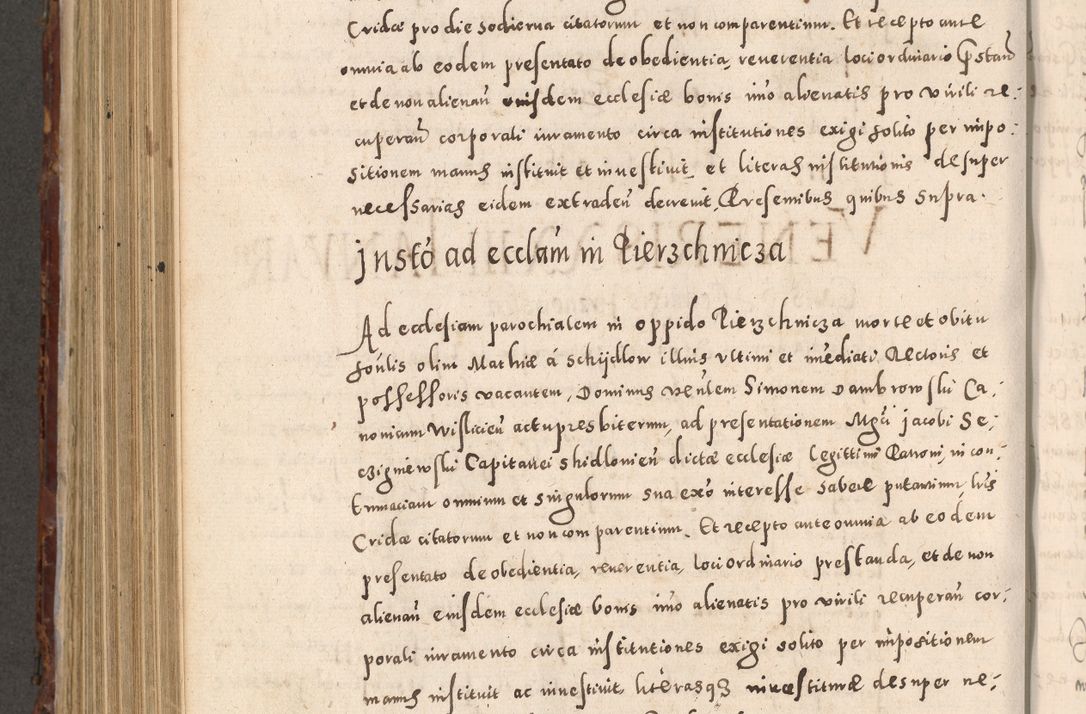 Cridæ pro die hodierna citatorum et non comparentium. Et recepto ante
omnia ab eodem presentato de obedientia, reverentia loci ordinario prestan̄
et de non alienan̄ eiusdem ecclesiæ bonis imo alienatis pro virili re-
cuperan̄ corporali iuramento circa institutiones exigi solito per impo-
sitionem manus instituit et investivit, et literas institutionis desuper
necessarias eidem extraden̄ decrevit. Presentibus quibus supra.
Instō ad ecclam̄ in Pierzchnicza
Ad ecclesiam parochialem in oppido Pierzchnicza morte et obitu
hon̄lis olim Mathiæ á Schijdlow illius ultimi et im̄ediati Rectoris et
possessoris vacantem, Dominus ven̄lem Simonem Dambrowski Ca-
nonicum Wislicien̄ actu presbiterum, ad presentationem Mgci Jacobi Se-
czigniewski Capitanei Shidlovien̄ dictæ ecclesiæ legittimi Patroni, in con-
tumaciam omnium et singulorum sua exō interesse habere putantium, lrīs
Cridæ citatorum et non comparentium. Et recepto ante omnia ab eodem
presentato de obedientia, reverentia, loci ordinario prestanda, et de non
alienan̄ eiusdem ecclesiæ bonis imo alienatis pro virili recuperan̄ cor-
porali iuramento circa institutiones exigi solito per impositionem
manus instituit ac investivit, literasq3 investituræ desuper ne-